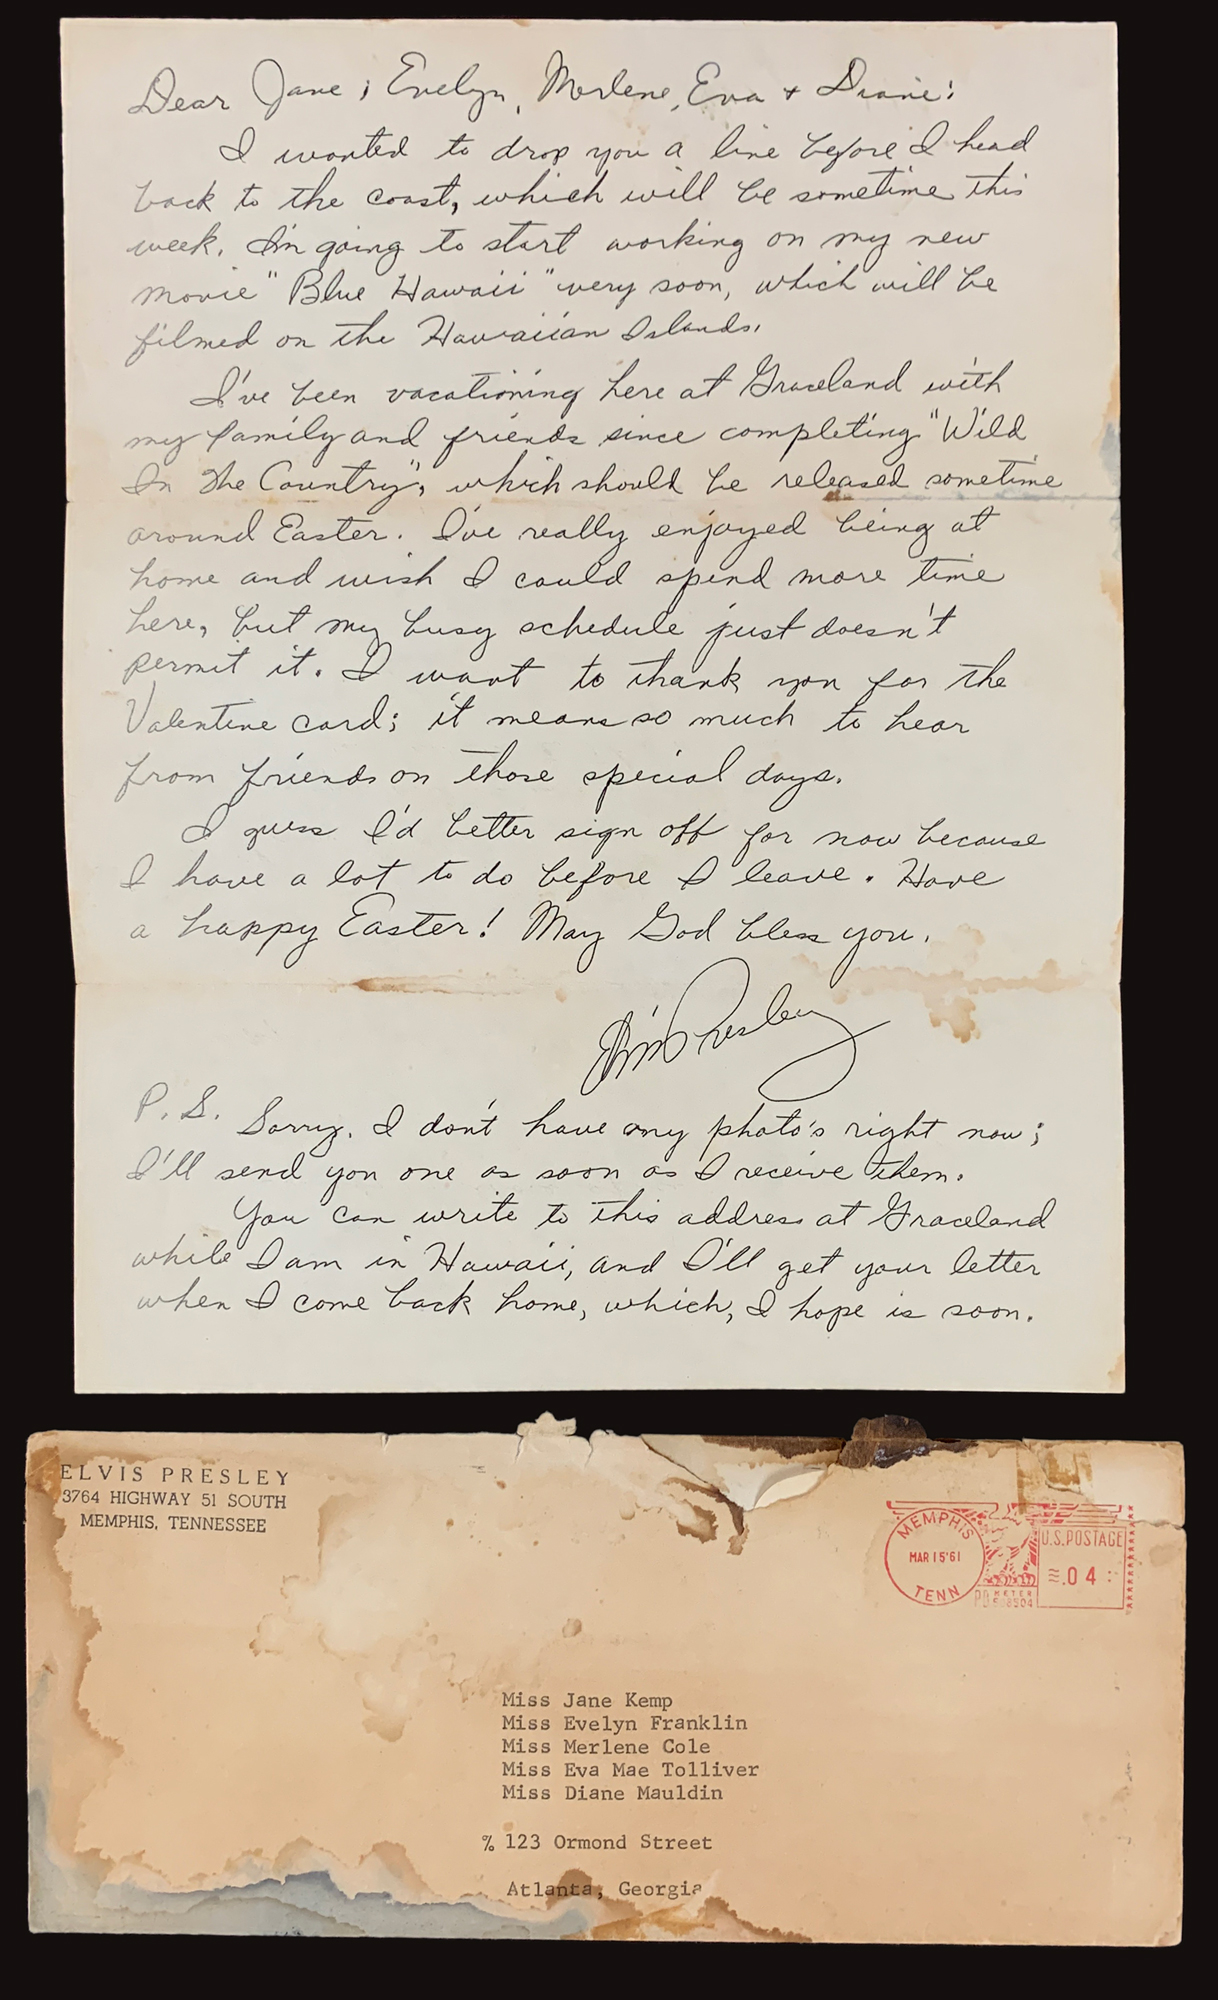 Dear Jane, Evelyn, Merlene, Eva + Diane:
I wanted to drop you a line before I head
back to the coast, which will be sometime this
week. I'm going to start working on my new
movie "Blue Hawaii" very soon, which will be
filmed on the Hawaiian Islands.
I've been vacationing here at Graceland with
my family and friends since completing "Wild
In The Country", which should be released sometime
around Easter. I've really enjoyed being at
home and wish I could spend more time
here, but my busy schedule just doesn't
permit it. I want to thank you for the
Valentine card; it means so much to hear
from friends on those special days.
I guess I'd better sign off for now because
I have a lot to do before I leave. Have
a happy Easter! May God bless you.
Elvis Presley
P.S. Sorry, I don't have any photo's right now;
I'll send you one as soon as I receive them.
You can write to this address at Graceland
while I am in Hawaii, and I'll get your letter
when I come back home, which, I hope is soon.
ELVIS PRESLEY
3764 HIGHWAY 51 SOUTH
MEMPHIS, TENNESSEE
MEMPHIS
MAR 15 '61
TENN
U.S. POSTAGE
.04
METER
Miss Jane Kemp
Miss Evelyn Franklin
Miss Merlene Cole
Miss Eva Mae Tolliver
Miss Diane Mauldin
% 123 Ormond Street
Atlanta, Georgia